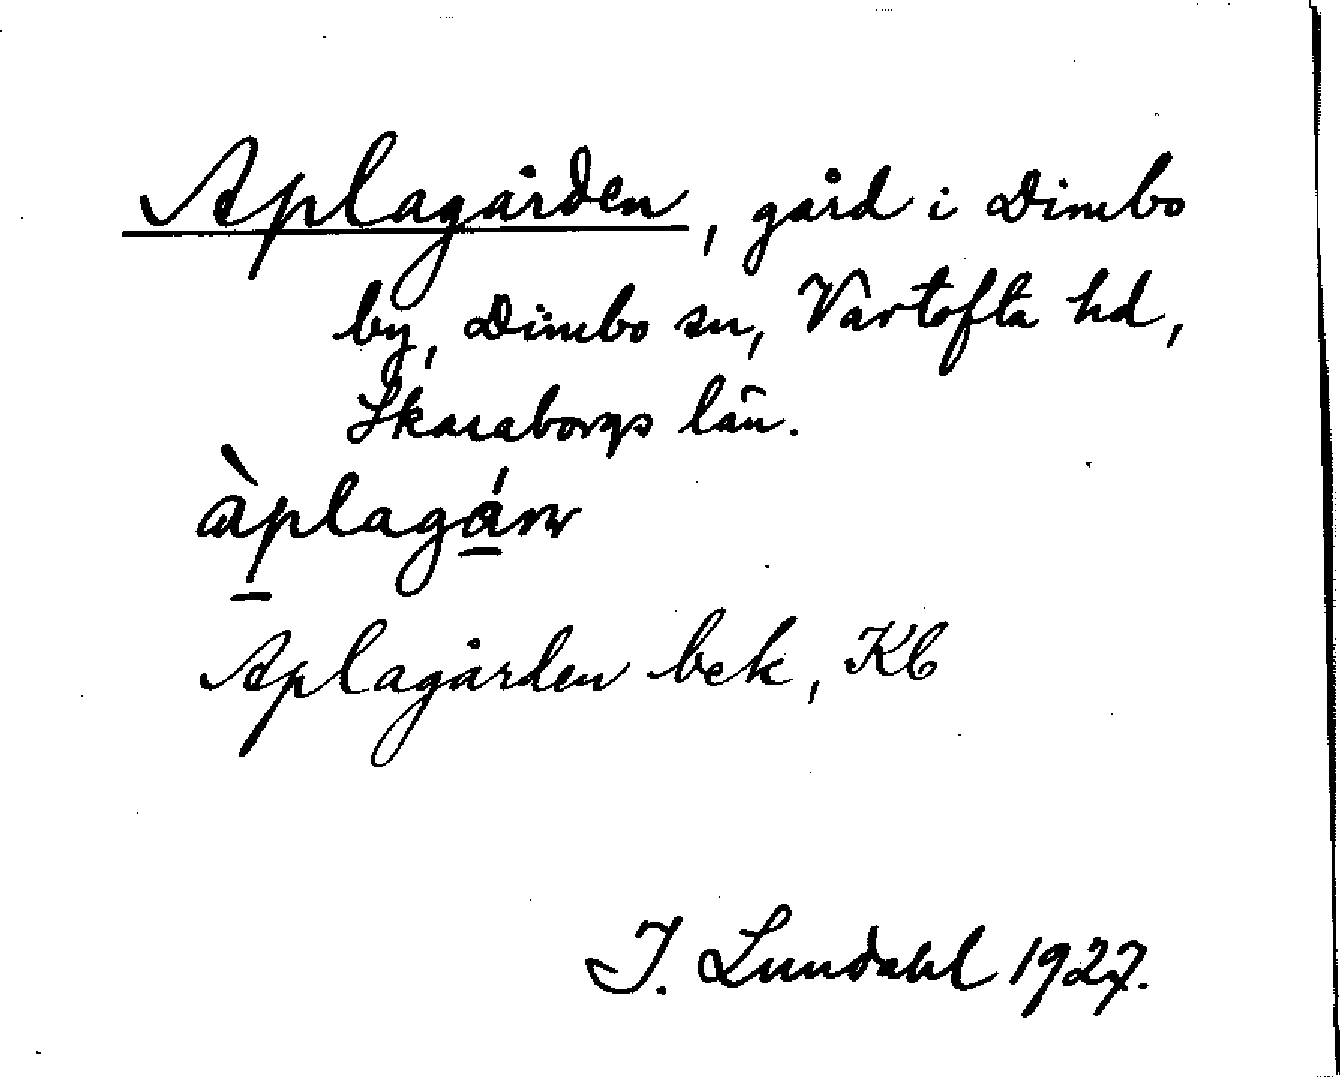 Aplagården, gård i Dimbo
by, Dimbo sn, Vartofta hd,
Skaraborgs län.
Aplagården bek, Kb
I. Lundahl 1927.